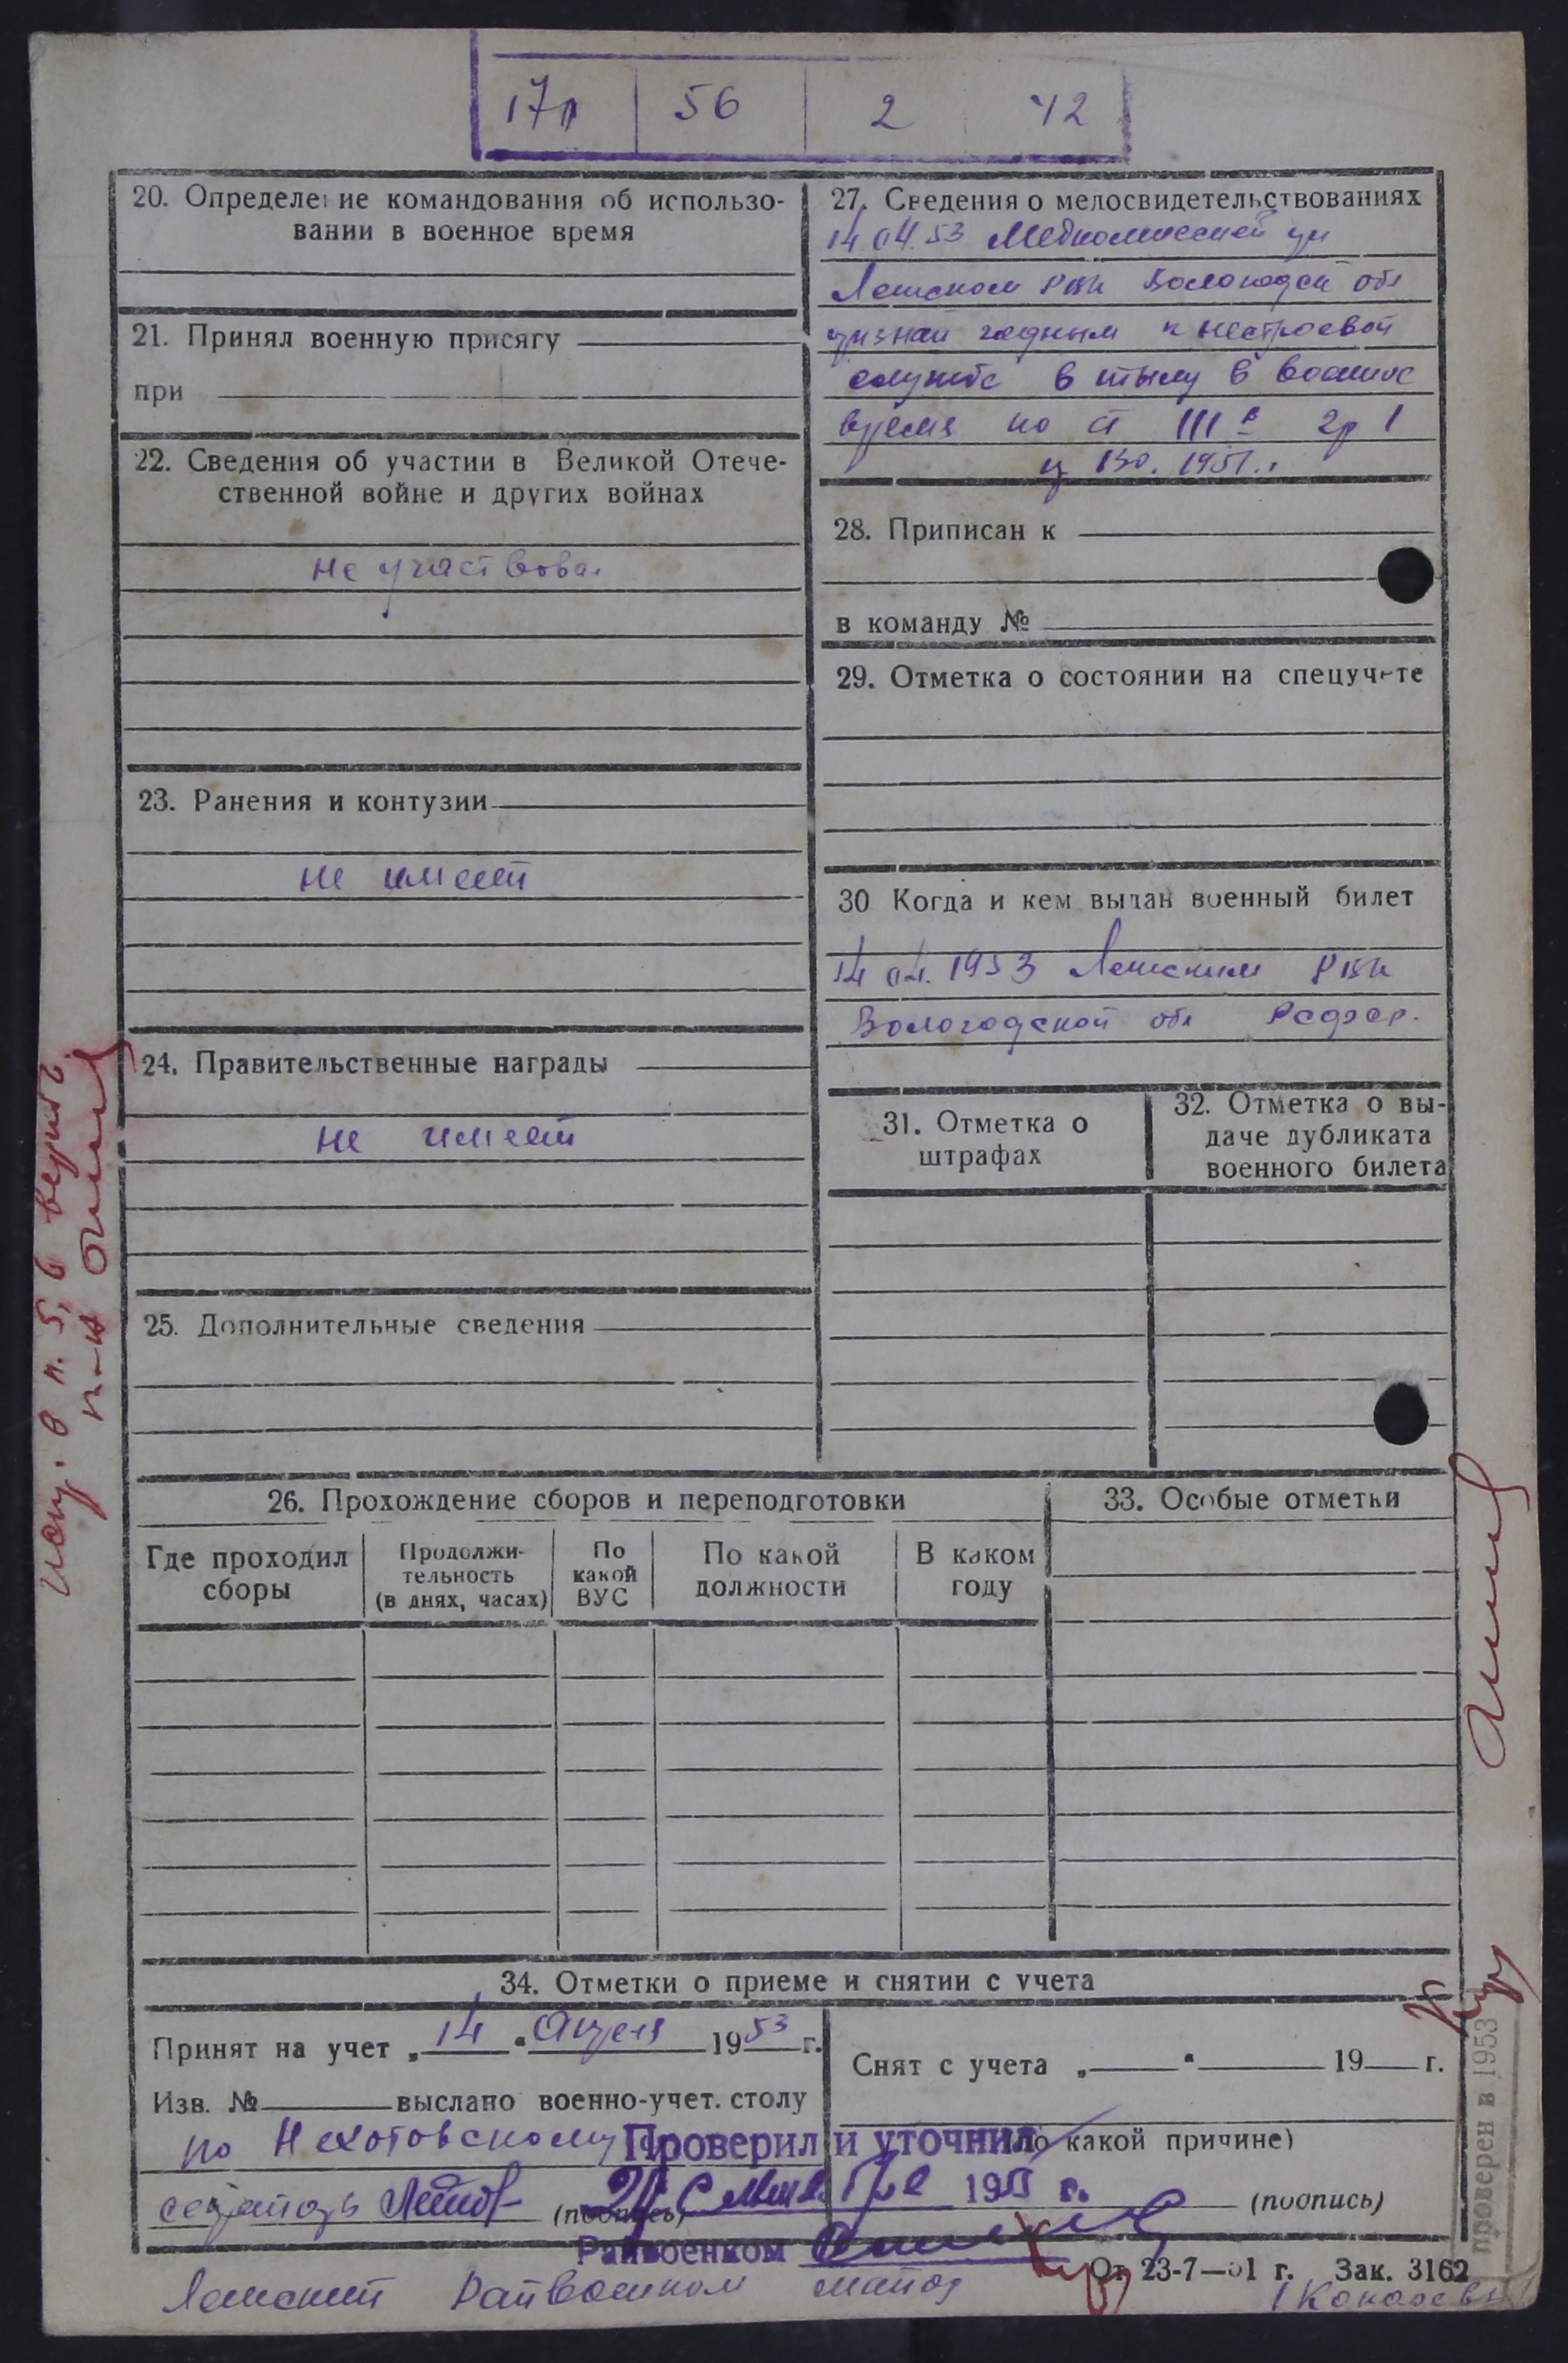 17п 56 2 42
20. Определение командования об использо-
вании в военное время
21. Принял военную присягу
при
22. Сведения об участии в Великой Отече-
ственной войне и других войнах
не участвовал
23. Ранения и контузии
не имеет
24. Правительственные награды
не имеет
25. Дополнительные сведения
27. Сведения о медосвидетельствованиях
14.04.53 Медкомиссией при
Лежском РВК Вологодск обл
признан годным к нестроевой
службе в тылу в военное
время по ст III в гр I
1951 г.
28. Приписан к
в команду №
29. Отметка о состоянии на спецучете
30 Когда и кем выдан военный билет
14.04.1953 Лежским РВК
Вологодской обл РСФСР.
31. Отметка о
штрафах
32. Отметка о вы-
даче дубликата
военного билета
26. Прохождение сборов и переподготовки
Где проходил
сборы
Продолжи-
тельность
(в днях, часах)
По
какой
ВУС
По какой
должности
В каком
году
33. Особые отметки
34. Отметки о приеме и снятии с учета
Принят на учет „14“ Апреля 1953 г.
Изв. № выслано военно-учет. столу
по Нехотовскому
секретарь
(подпись)
Снят с учета „ “ 19 г.
(по какой причине)
(подпись)
Проверил и уточнил
195 г.
Райвоенком
От 23-7—51 г. Зак. 3162
Лежский Райвоенком майор
проверен в 1953
в п. 5, 6 верить